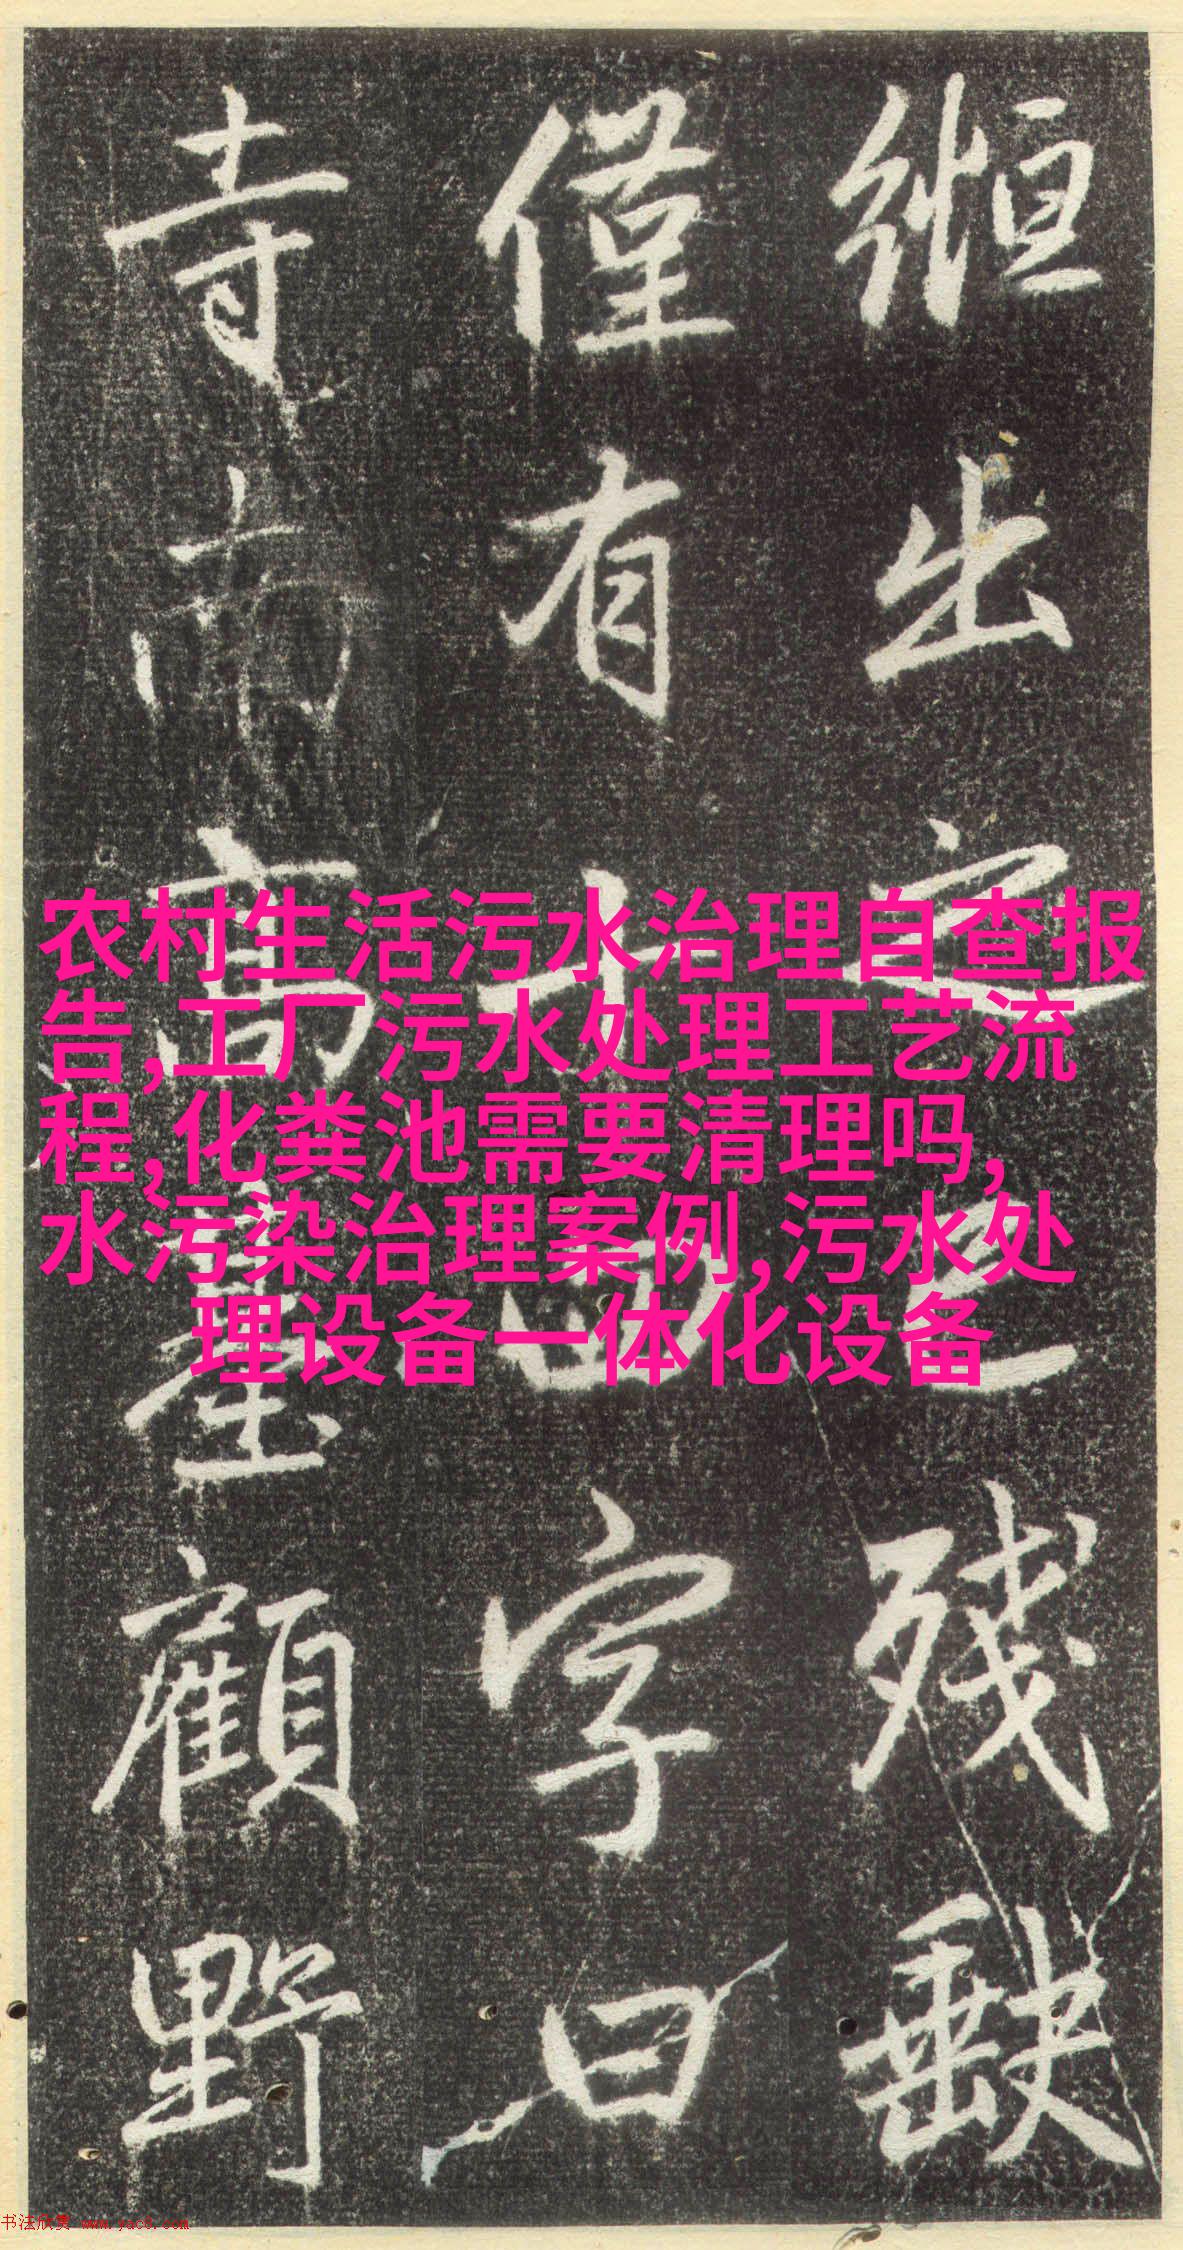 农村生活污水治理自查报
告,工厂污水处理工艺流
程,化粪池需要清理吗,
水污染治理案例,污水处
理设备一体化设备
出已残
僅有十四字曰
寺而高臺顧野
书法欣赏 www.yac8.com